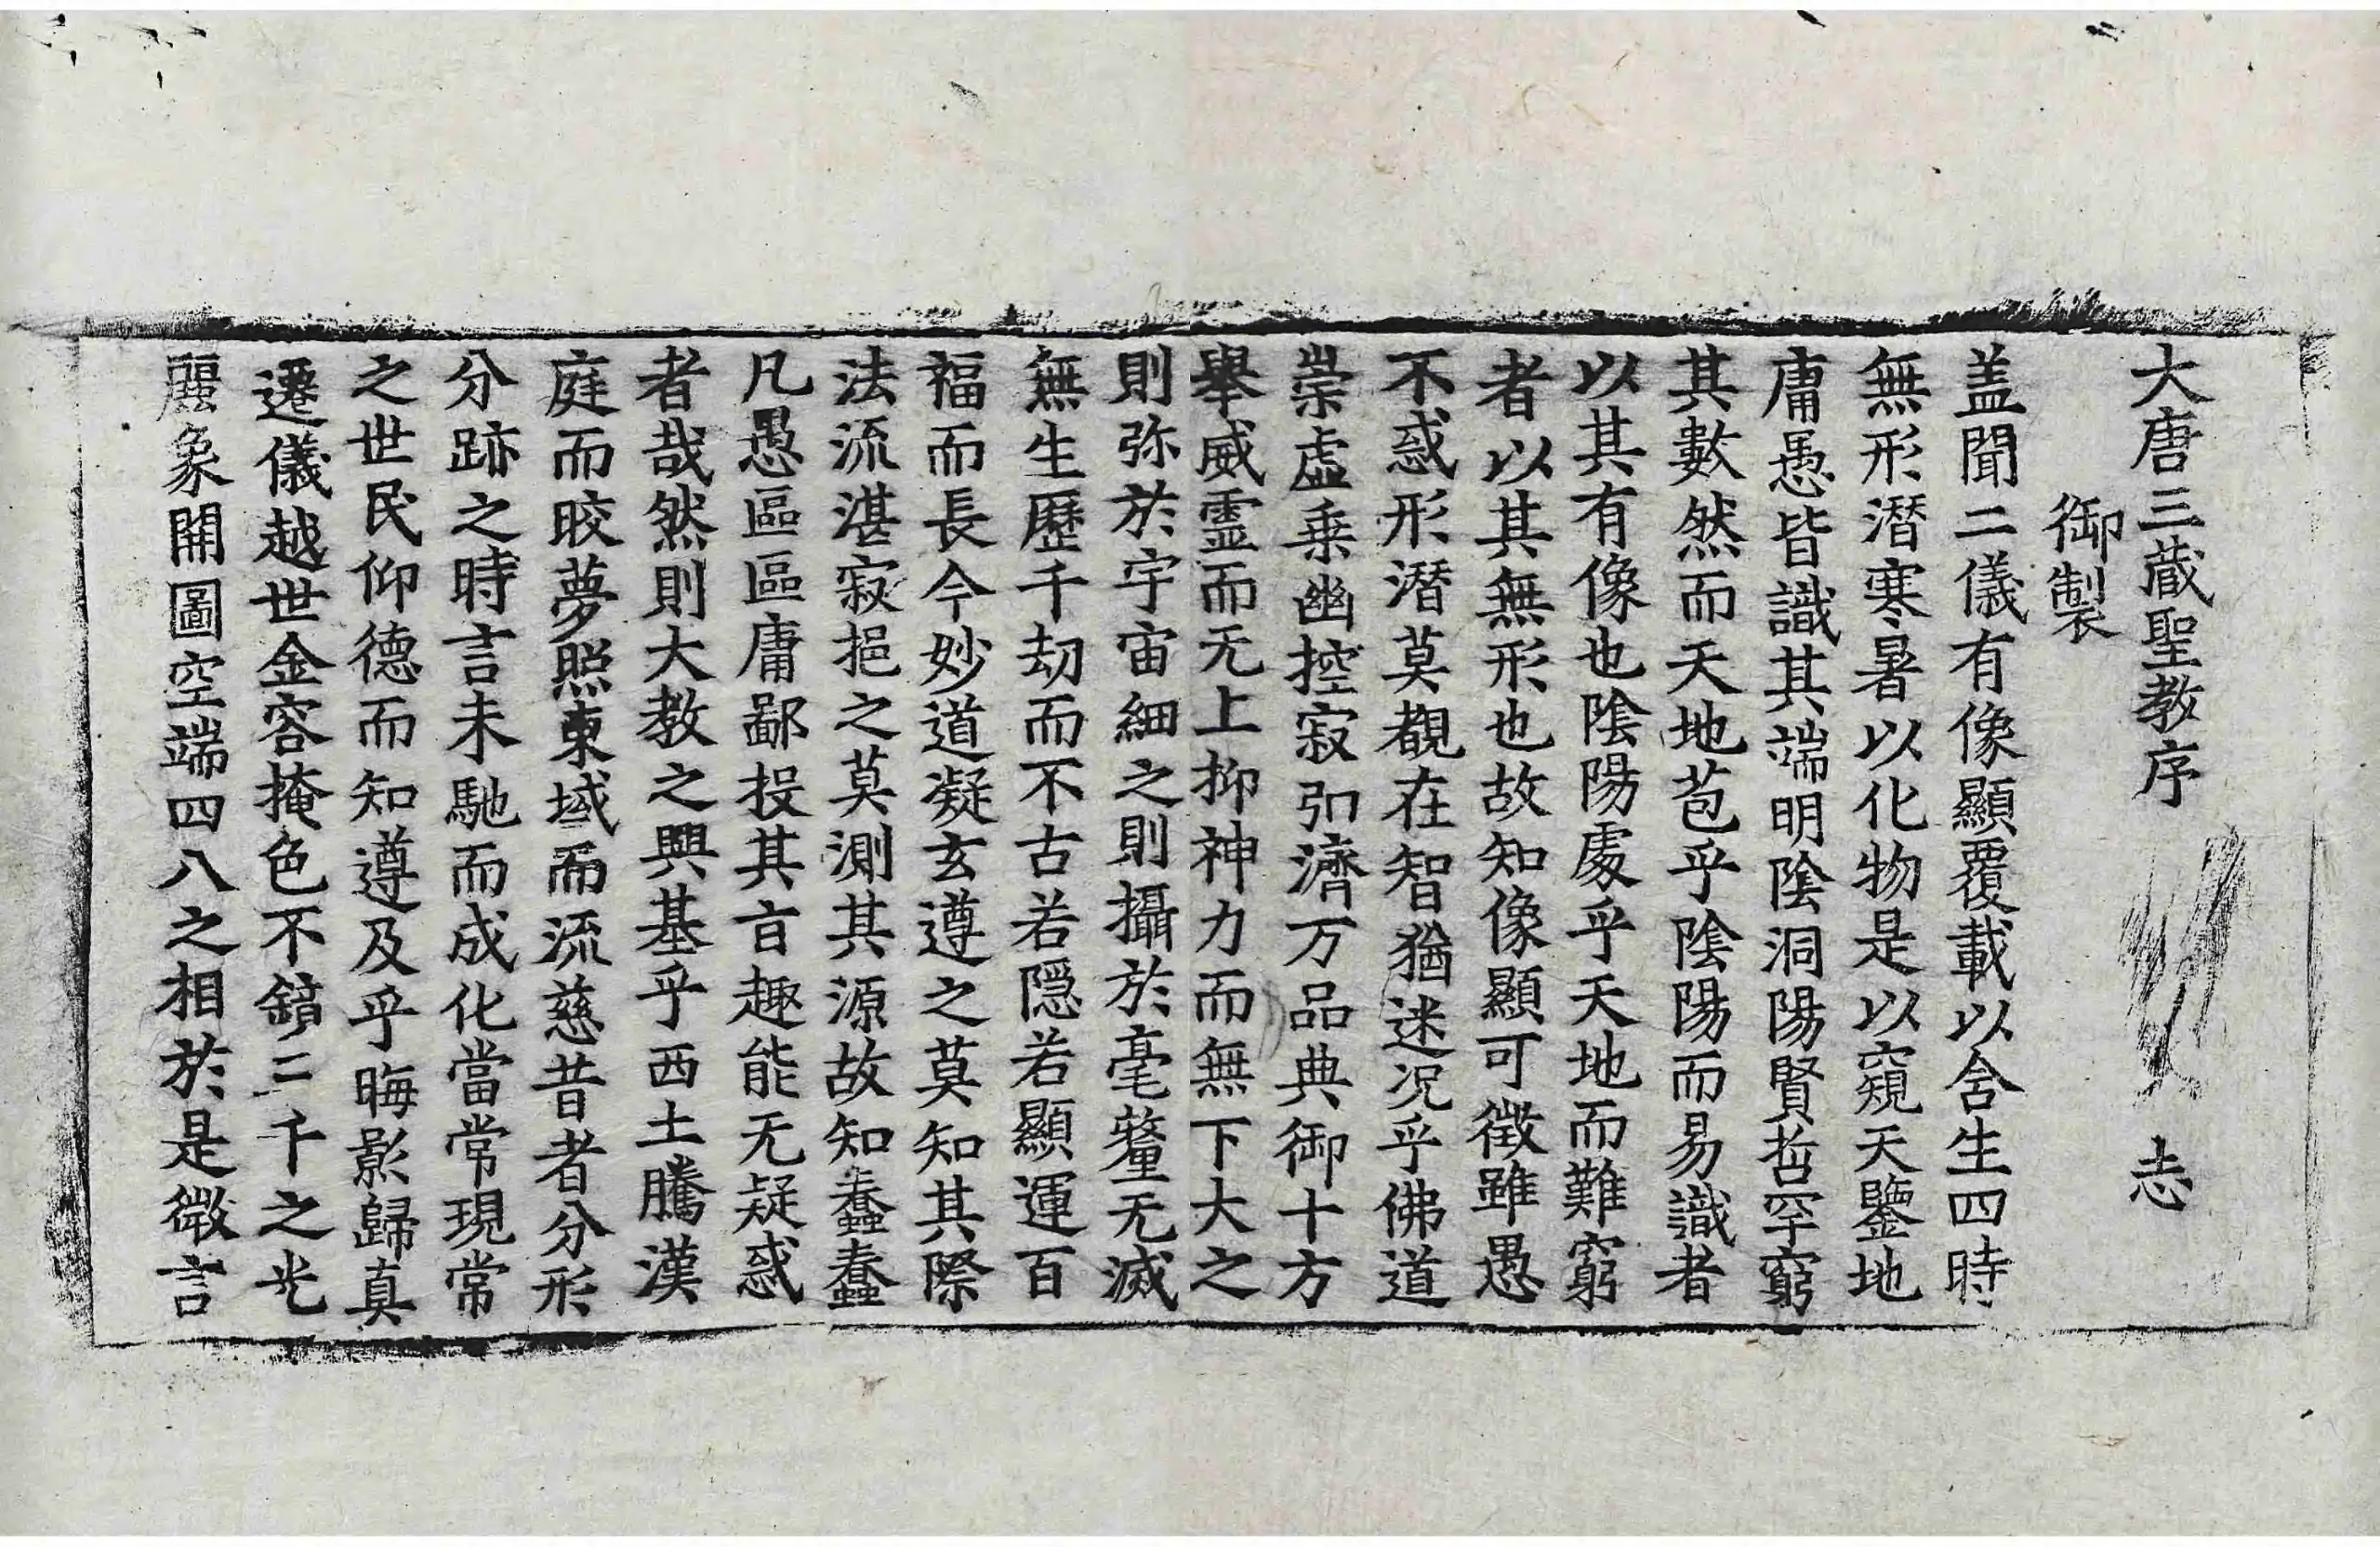 大唐三蔵聖教序 忐
御製
盖聞二儀有像顯覆載以含生四時
無形潜寒暑以化物是以窺天鑒地
庸愚皆識其端明陰洞陽賢哲罕窮
其數然而天地苞乎陰陽而易識者
以其有像也陰陽處乎天地而難窮
者以其無形也故知像顯可徵雖愚
不惑形潜莫覩在智猶迷况乎佛道
崇虛乗幽控寂弘濟万品典御十方
舉威霊而无上抑神力而無下大之
則弥於宇宙細之則攝於毫釐无滅
無生歷千劫而不古若隱若顯運百
福而長今妙道凝玄遵之莫知其際
法流湛寂挹之莫測其源故知蠢蠢
凡愚區區庸鄙投其㫖趣能无疑惑
者哉然則大教之興基乎西土騰漢
庭而皎夢照東域而流慈昔者分形
分跡之時言未馳而成化當常現常
之世民仰德而知遵及乎晦影歸真
遷儀越世金容掩色不鏡三千之光
麗象開圖空端四八之相於是微言